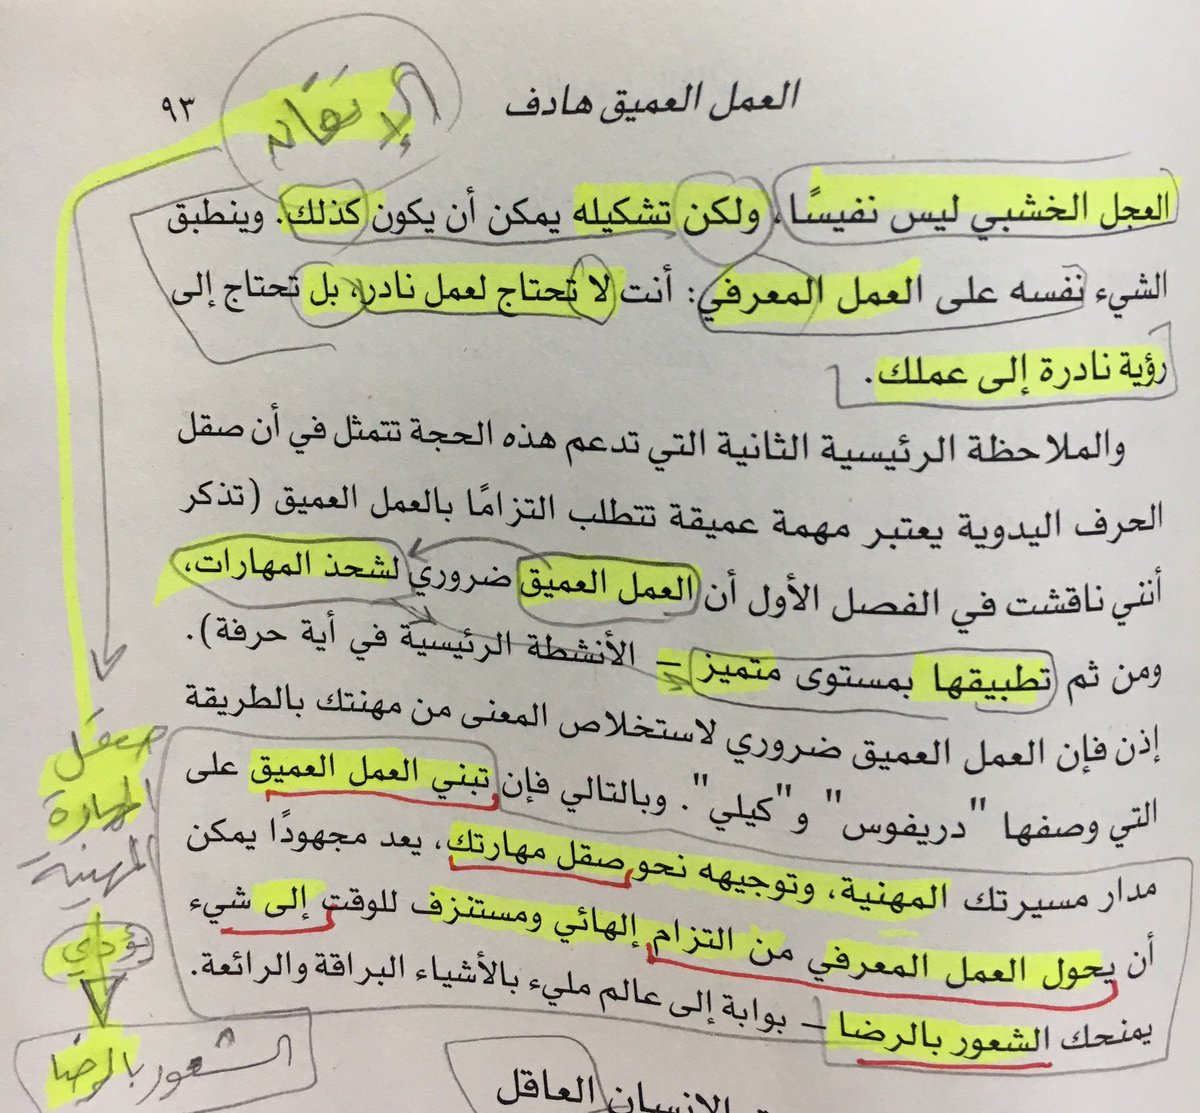 العمل العميق هادف ٩٣
الإتقان
العجل الخشبي ليس نفيسًا، ولكن تشكيله يمكن أن يكون كذلك. وينطبق
الشيء نفسه على العمل المعرفي: أنت لا تحتاج لعمل نادر، بل تحتاج إلى
رؤية نادرة إلى عملك.
والملاحظة الرئيسية الثانية التي تدعم هذه الحجة تتمثل في أن صقل
الحرف اليدوية يعتبر مهمة عميقة تتطلب التزامًا بالعمل العميق (تذكر
أنني ناقشت في الفصل الأول أن العمل العميق ضروري لشحذ المهارات،
ومن ثم تطبيقها بمستوى متميز – الأنشطة الرئيسية في أية حرفة).
إذن فإن العمل العميق ضروري لاستخلاص المعنى من مهنتك بالطريقة
التي وصفها "دريفوس" و"كيلي". وبالتالي فإن تبني العمل العميق على
مدار مسيرتك المهنية، وتوجيهه نحو صقل مهارتك، يعد مجهودًا يمكن
أن يحول العمل المعرفي من التزام إلهائي ومستنزف للوقت إلى شيء
يمنحك الشعور بالرضا – بوابة إلى عالم مليء بالأشياء البراقة والرائعة.
صقل
المهارة
المهنية
يؤدي
الشعور بالرضا
الإنسان العاقل